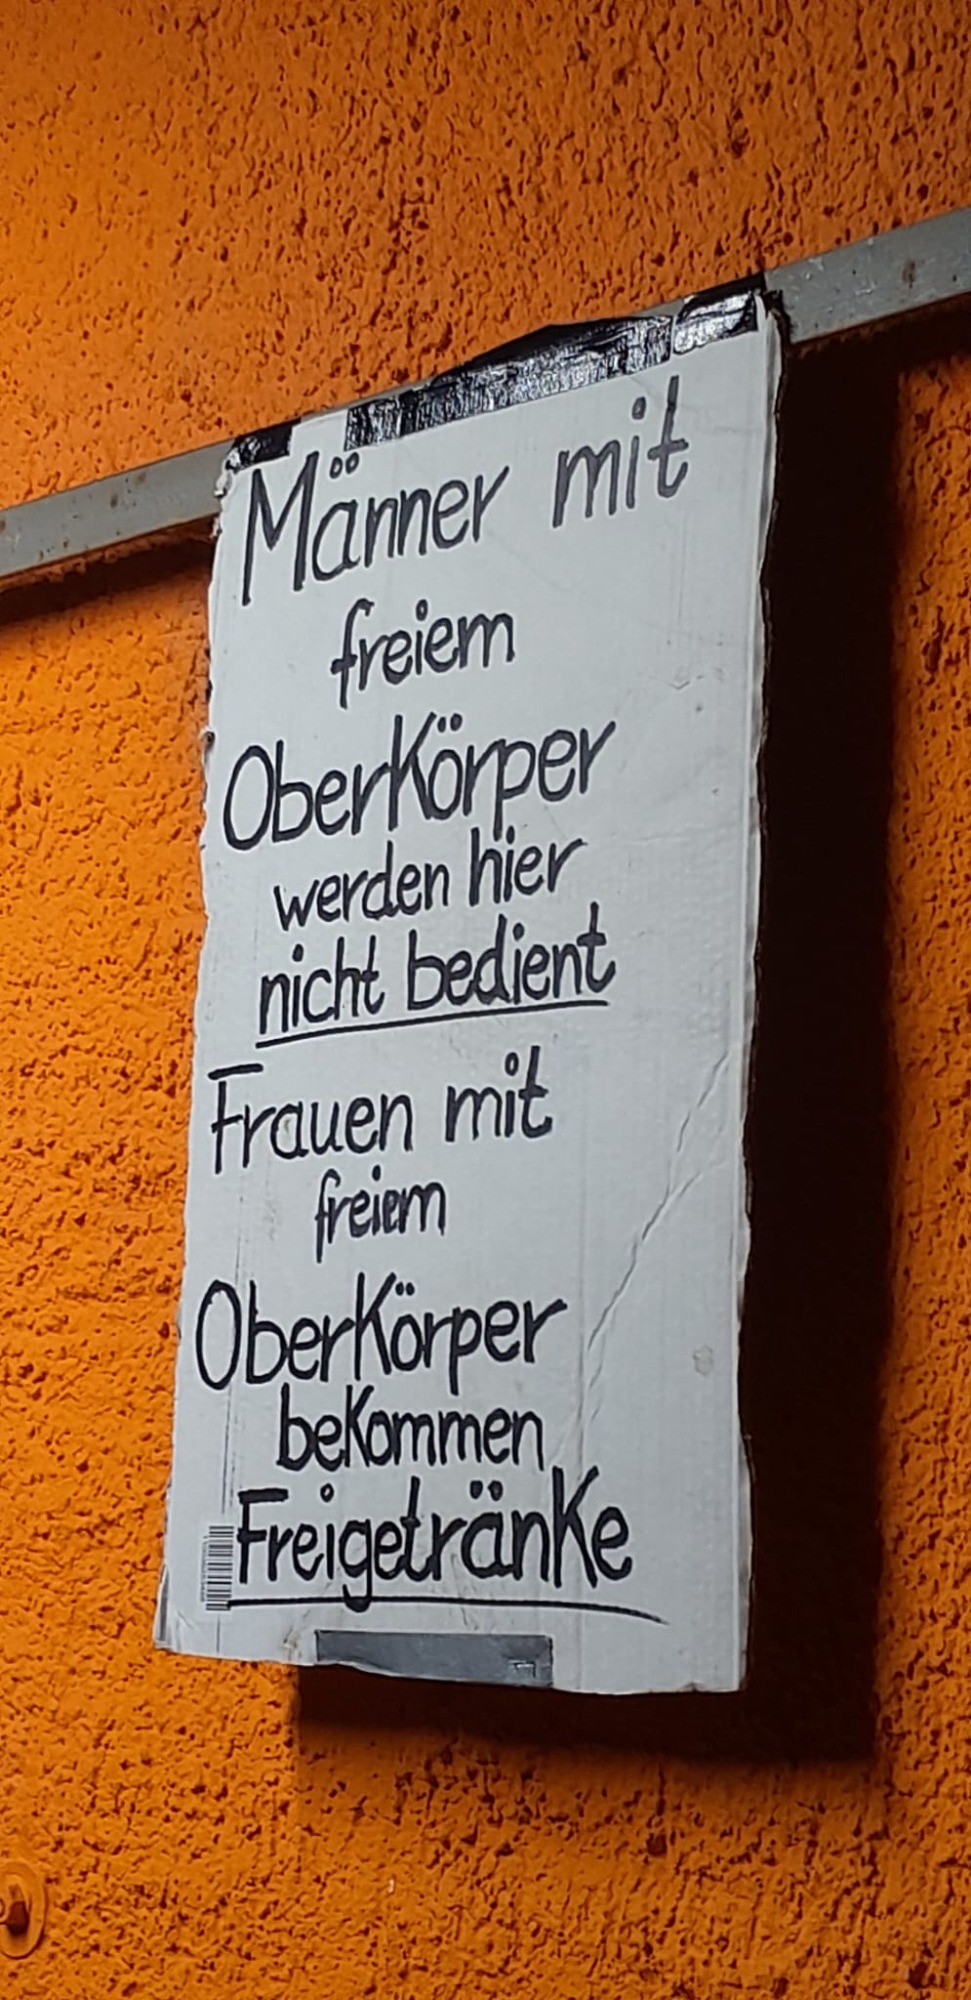 Männer mit
freiem
Oberkörper
werden hier
nicht bedient
Frauen mit
freiem
Oberkörper
bekommen
Freigetränke